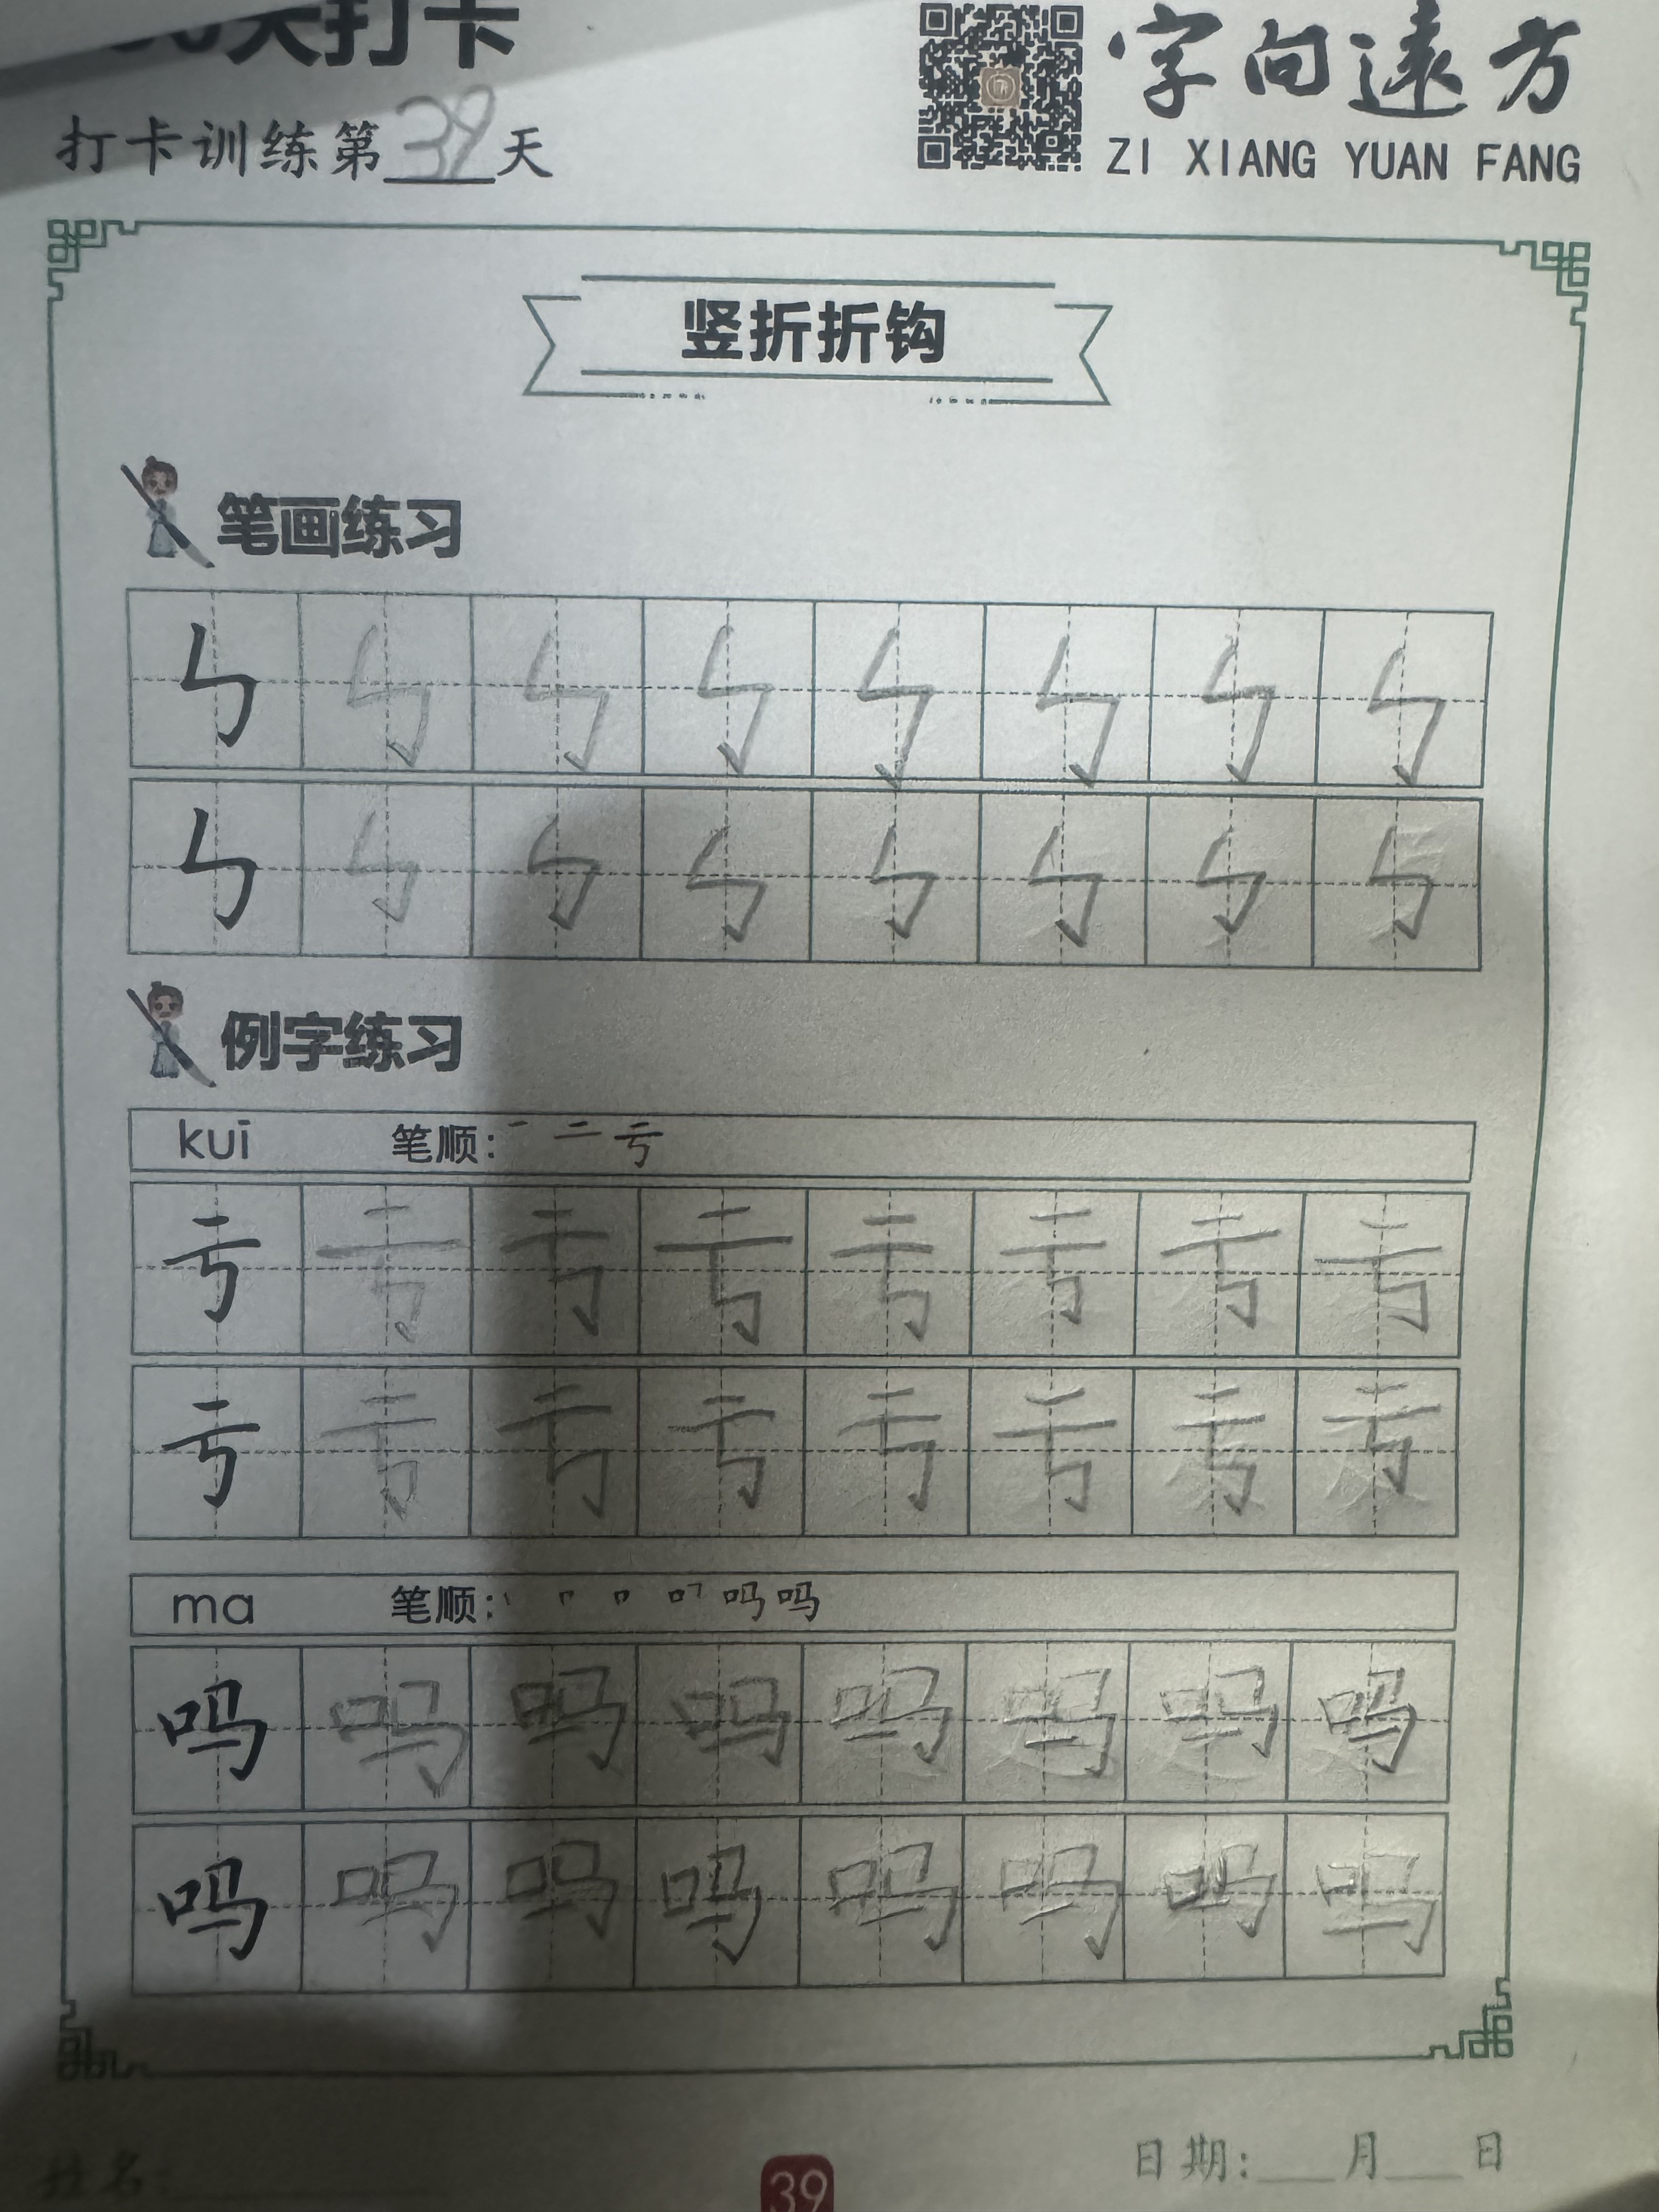 天打卡
字向遠方
打卡训练第39天
ZI XIANG YUAN FANG
竖折折钩
笔画练习
ㄣ ㄣ ㄣ ㄣ ㄣ ㄣ ㄣ ㄣ
ㄣ ㄣ ㄣ ㄣ ㄣ ㄣ ㄣ ㄣ
例字练习
kuī 笔顺: 一 二 亏
亏 亏 亏 亏 亏 亏 亏 亏
亏 亏 亏 亏 亏 亏 亏 亏
ma 笔顺: 吗 吗
吗 吗 吗 吗 吗 吗 吗 吗
吗 吗 吗 吗 吗 吗 吗 吗
姓名:
日期:___月___日
39